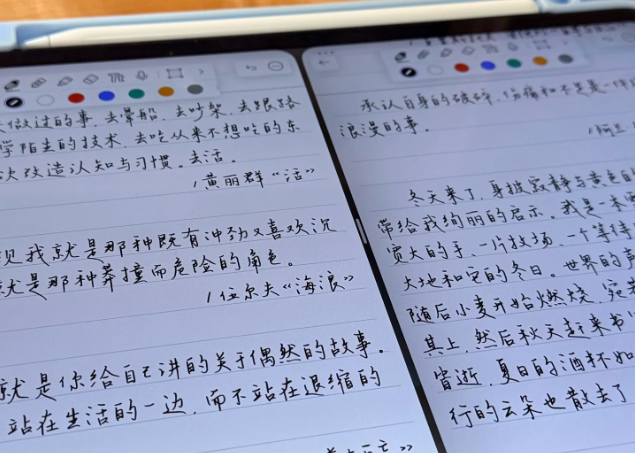 做过的事.去骨船.去吵架.去跟路
学陌生的技术.去吃从来不想吃的东
次改造认知与习惯.去活.
/黄丽群“活”
见我就是那种既有冲劲又喜欢沉
就是那种莽撞而危险的角色.
/伍尔夫“海浪”
就是你给自己讲的关于偶然的故事.
站在生活的一边.而不站在退缩的
承认自身的破碎.伤痛和不足是一件
浪漫的事.
冬天来了.身披寂静与黄色的
带给我绚丽的启示.我是一本
宽大的手.一片牧场.一个等待
大地和它的冬日.世界的声
随后小麦开始燃烧.宛
其上.然后秋天走来
皆逝.夏日的酒杯如
行的云朵也散去了